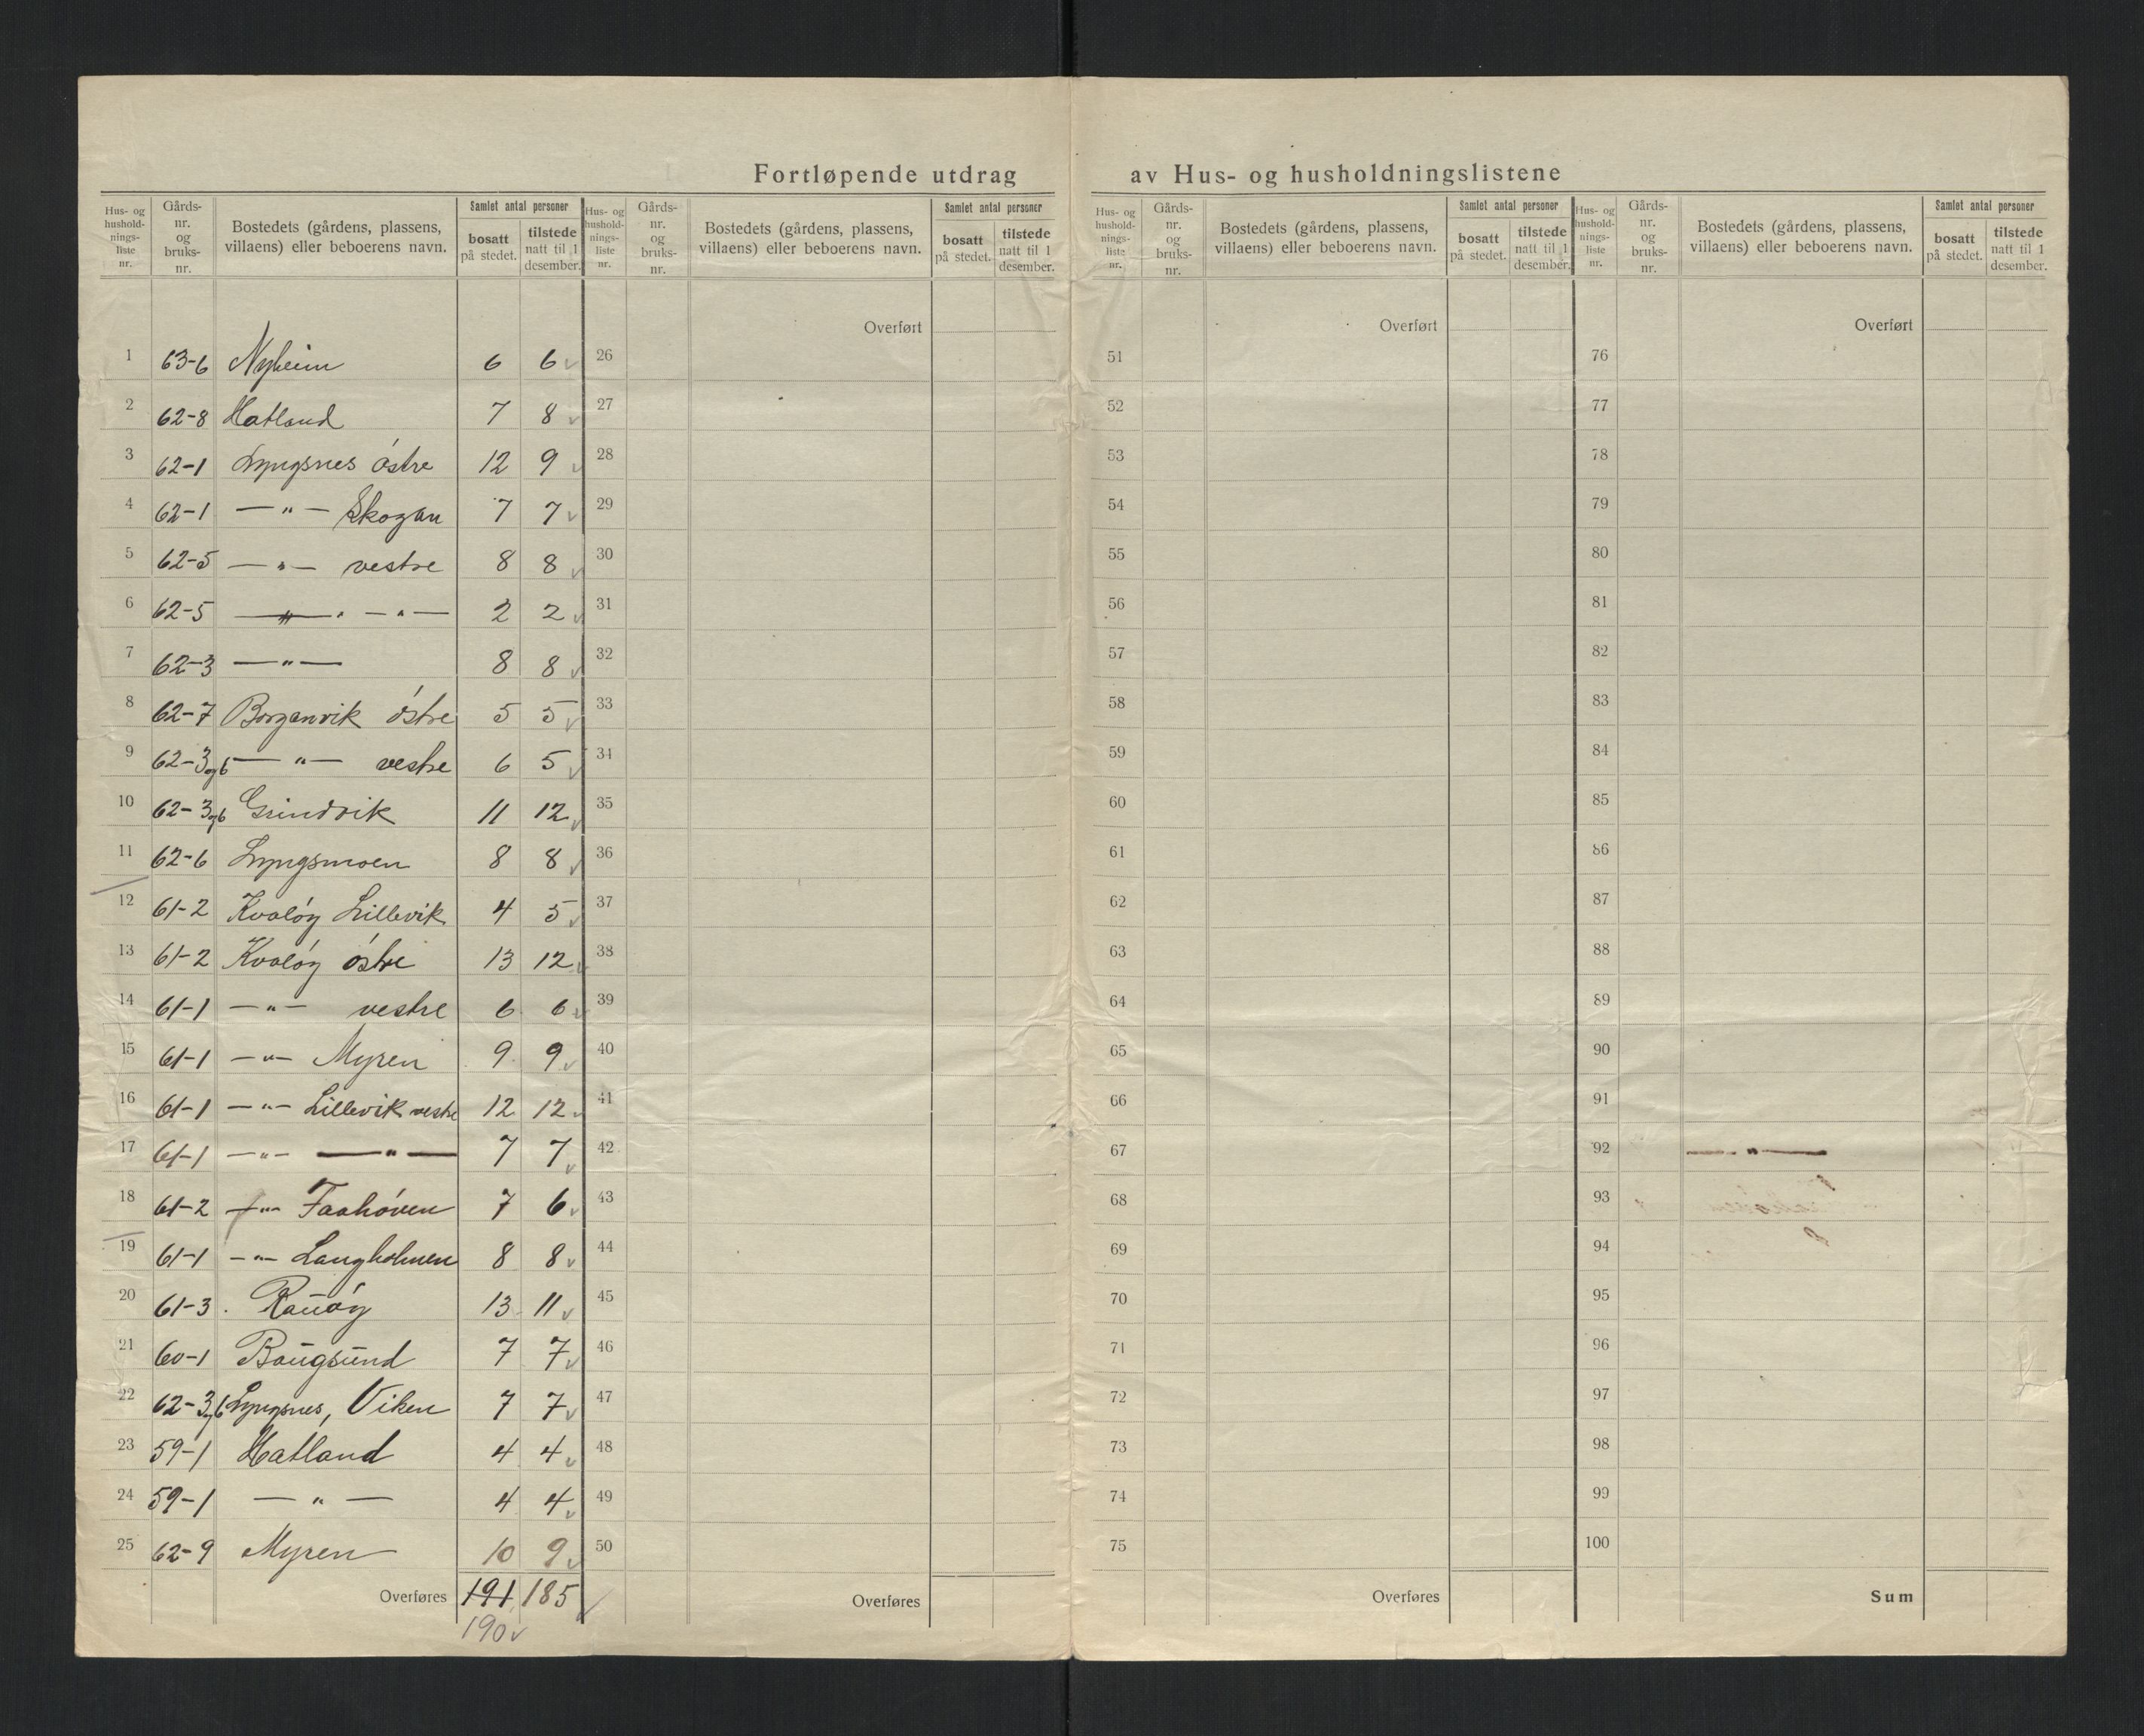 Fortløpende utdrag av Hus- og husholdningslistene
Hus- og hushold- nings- liste nr. | Gårds- nr. og bruks- nr. | Bostedets (gårdens, plassens, villaens) eller beboerens navn. | Samlet antal personer | bosatt på stedet. | tilstede natt til 1 desember.
1 63-6 Nyheim 6 6 v
2 62-8 Hatland 7 8 v
3 62-1 Lyngsnes östre 12 9 v
4 62-1 — " — Skogan 7 7 v
5 62-5 — " — vestre 8 8 v
6 62-5 — " — " — 2 2 v
7 62-3 — " — 8 8 v
8 62-7 Borganvik östre 5 5 v
9 62-3 og 6 — " — vestre 6 5 v
10 62-3 og 6 Grindvik 11 12 v
11 62-6 Lyngsmoen 8 8 v
12 61-2 Kvalöy Lillevik 4 5 v
13 61-2 Kvalöy östre 13 12 v
14 61-1 — " — vestre 6 6 v
15 61-1 — " — Myren 9 9 v
16 61-1 — " — Lillevik vestre 12 12 v
17 61-1 — " — — " — 7 7 v
18 61-2 — " — Faahöven 7 6 v
19 61-1 — " — Langholmen 8 8 v
20 61-3 Rauöy 13 11 v
21 60-1 Baugsund 7 7 v
22 62-3 og 6 Lyngsnes, Viken 7 7 v
23 59-1 Hatland 4 4 v
24 59-1 — " — 4 4 v
25 62-9 Myren 10 9 v
Overføres 191 185
190 v
Hus- og hushold- nings- liste nr. | Gårds- nr. og bruks- nr. | Bostedets (gårdens, plassens, villaens) eller beboerens navn. | Samlet antal personer | bosatt på stedet. | tilstede natt til 1 desember.
Overført
26
27
28
29
30
31
32
33
34
35
36
37
38
39
40
41
42
43
44
45
46
47
48
49
50
Overføres
Hus- og hushold- nings- liste nr. | Gårds- nr. og bruks- nr. | Bostedets (gårdens, plassens, villaens) eller beboerens navn. | Samlet antal personer | bosatt på stedet. | tilstede natt til 1 desember.
Overført
51
52
53
54
55
56
57
58
59
60
61
62
63
64
65
66
67
68
69
70
71
72
73
74
75
Overføres
Hus- og hushold- nings- liste nr. | Gårds- nr. og bruks- nr. | Bostedets (gårdens, plassens, villaens) eller beboerens navn. | Samlet antal personer | bosatt på stedet. | tilstede natt til 1 desember.
Overført
76
77
78
79
80
81
82
83
84
85
86
87
88
89
90
91
92
93
94
95
96
97
98
99
100
Sum